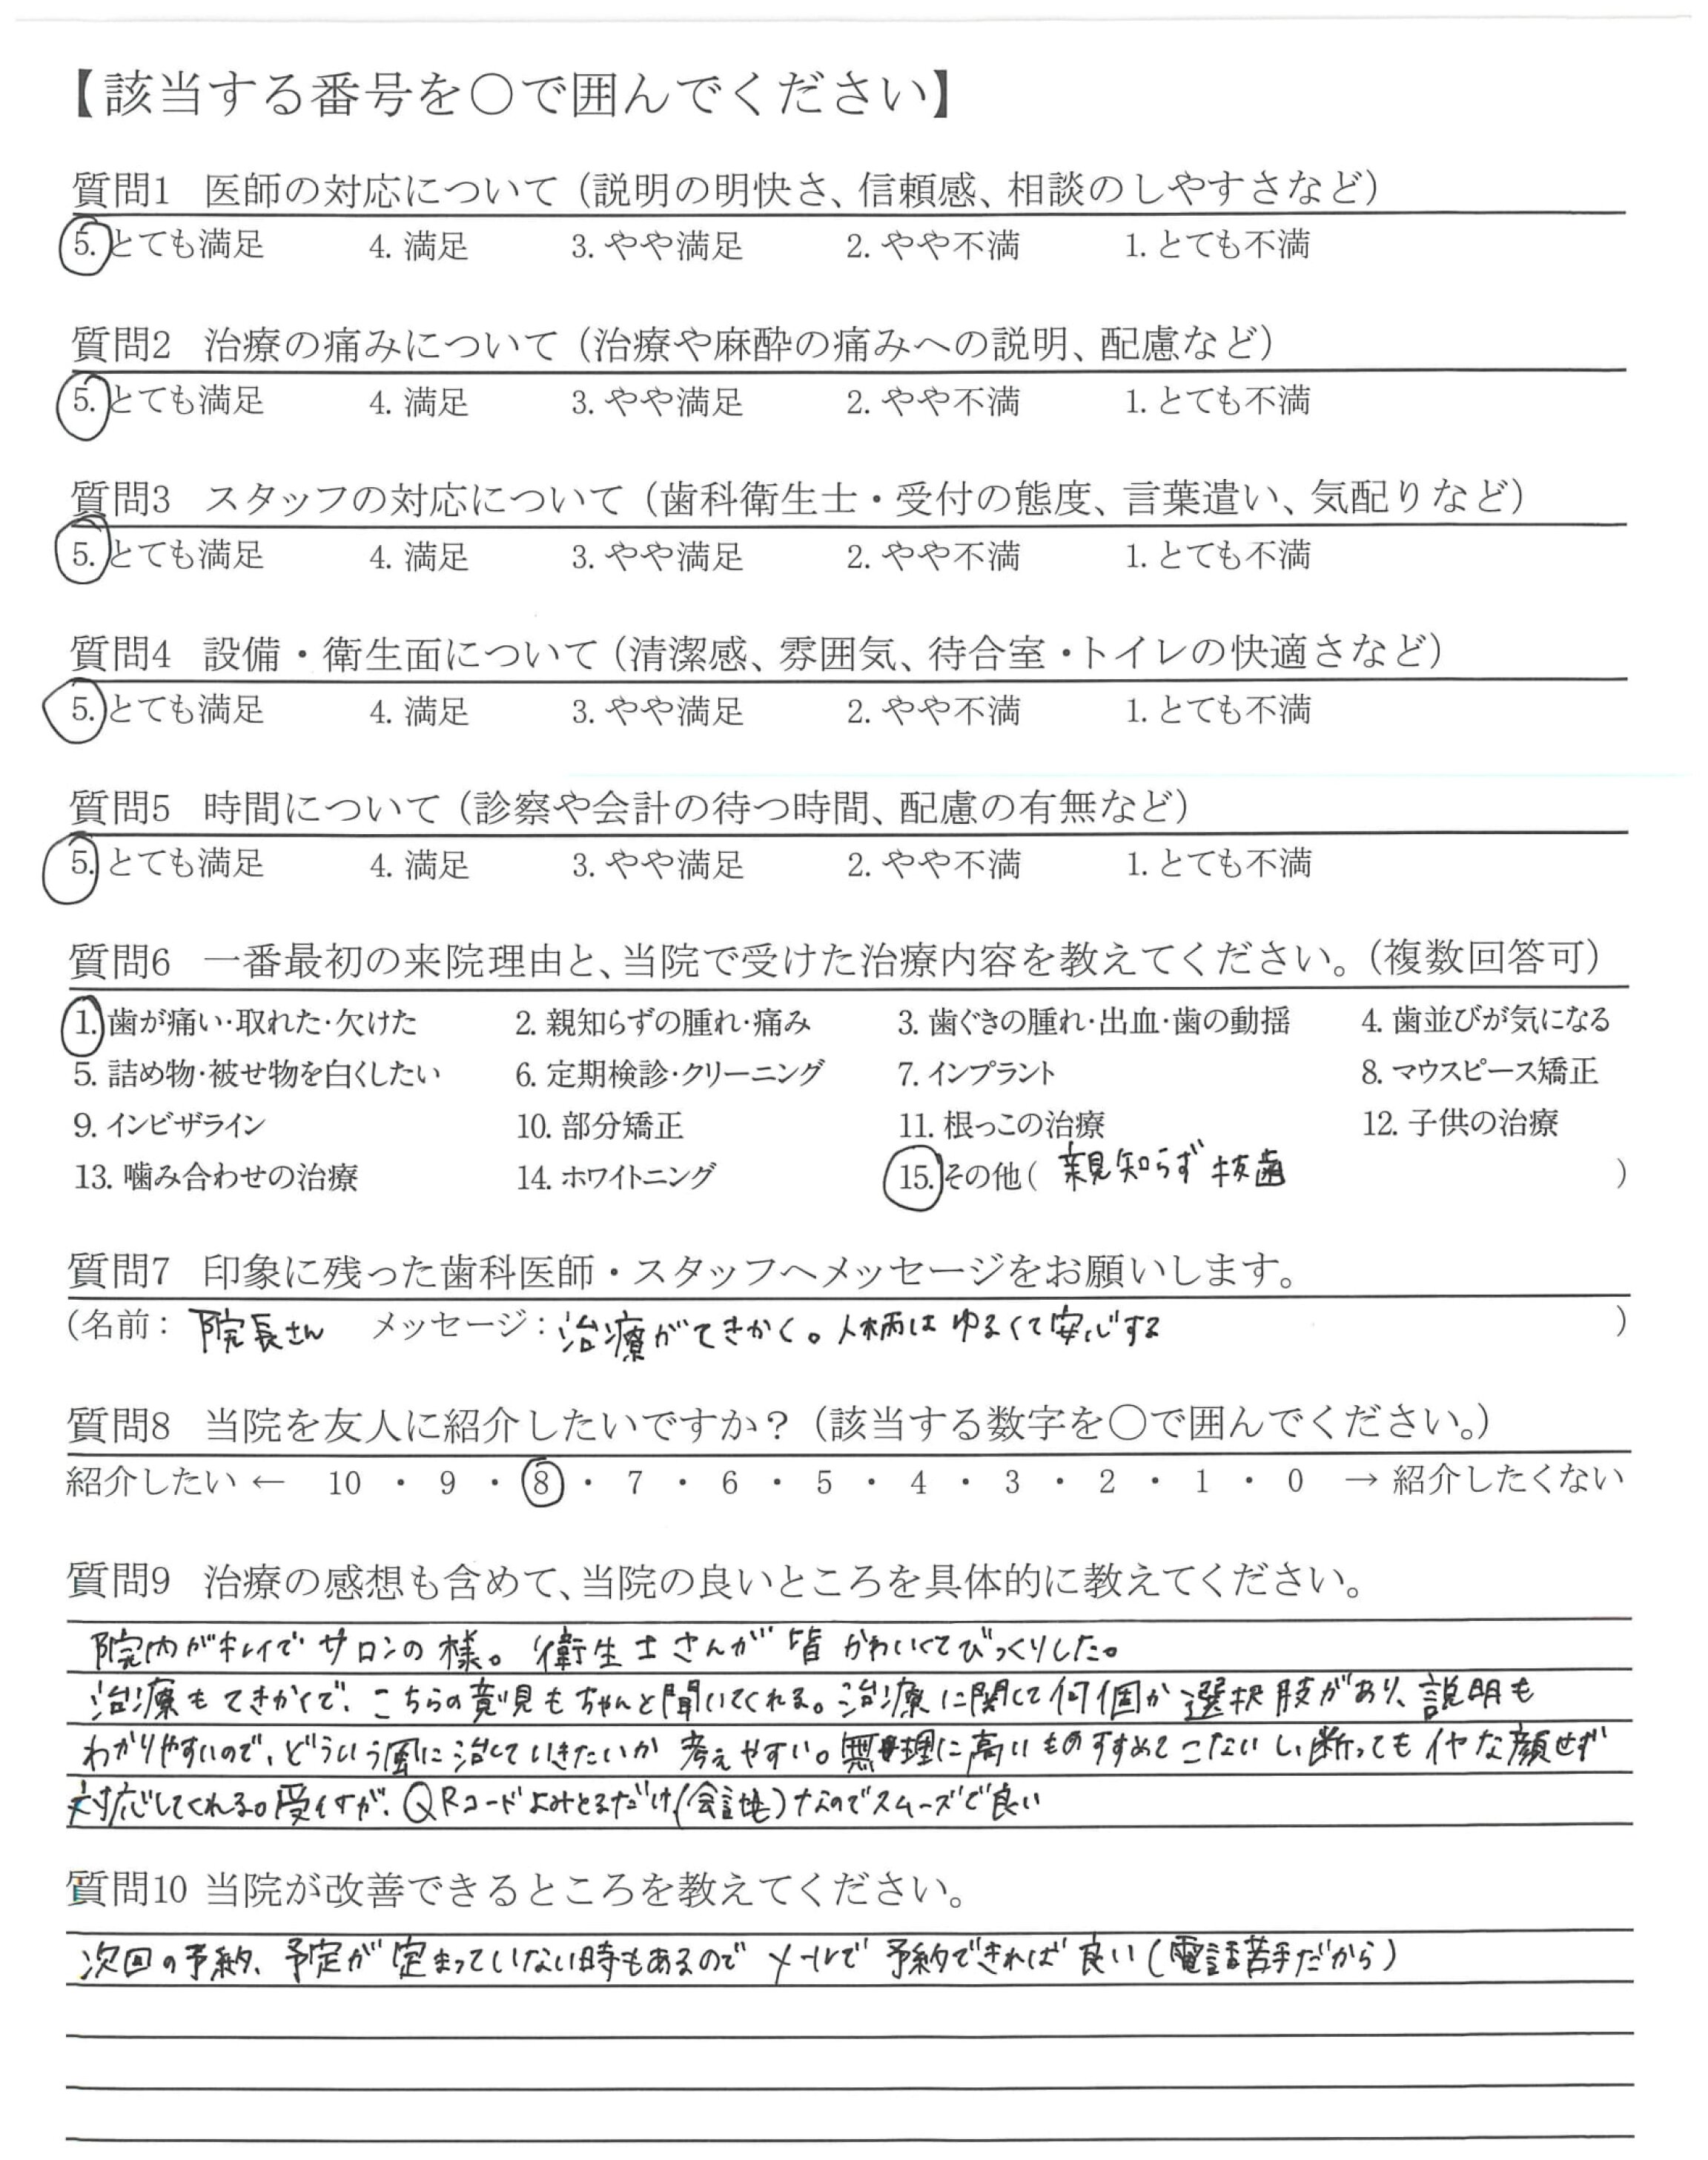 【該当する番号を○で囲んでください】
質問1 医師の対応について（説明の明快さ、信頼感、相談のしやすさなど）
5. とても満足 4. 満足 3. やや満足 2. やや不満 1. とても不満
質問2 治療の痛みについて（治療や麻酔の痛みへの説明、配慮など）
5. とても満足 4. 満足 3. やや満足 2. やや不満 1. とても不満
質問3 スタッフの対応について（歯科衛生士・受付の態度、言葉遣い、気配りなど）
5. とても満足 4. 満足 3. やや満足 2. やや不満 1. とても不満
質問4 設備・衛生面について（清潔感、雰囲気、待合室・トイレの快適さなど）
5. とても満足 4. 満足 3. やや満足 2. やや不満 1. とても不満
質問5 時間について（診察や会計の待つ時間、配慮の有無など）
5. とても満足 4. 満足 3. やや満足 2. やや不満 1. とても不満
質問6 一番最初の来院理由と、当院で受けた治療内容を教えてください。（複数回答可）
1. 歯が痛い・取れた・欠けた 2. 親知らずの腫れ・痛み 3. 歯ぐきの腫れ・出血・歯の動揺 4. 歯並びが気になる
5. 詰め物・被せ物を白くしたい 6. 定期検診・クリーニング 7. インプラント 8. マウスピース矯正
9. インビザライン 10. 部分矯正 11. 根っこの治療 12. 子供の治療
13. 噛み合わせの治療 14. ホワイトニング 15. その他（ 親知らず抜歯 ）
質問7 印象に残った歯科医師・スタッフへメッセージをお願いします。
（名前： 院長さん メッセージ： 治療がてきかく。人柄はゆるくて安心する ）
質問8 当院を友人に紹介したいですか？（該当する数字を○で囲んでください。）
紹介したい ← 10 ・ 9 ・ 8 ・ 7 ・ 6 ・ 5 ・ 4 ・ 3 ・ 2 ・ 1 ・ 0 → 紹介したくない
質問9 治療の感想も含めて、当院の良いところを具体的に教えてください。
院内がキレイでサロンの様。衛生士さんが皆かわいくてびっくりした。
治療もてきかくで、こちらの意見もちゃんと聞いてくれる。治療に関して何個か選択肢があり、説明も
わかりやすいので、どういう風に治していきたいか考えやすい。無理に高いものすすめてこないし、断ってもイヤな顔せず
対応してくれる。受付が、QRコードよみとるだけ(会計も)なのでスムーズで良い
質問10 当院が改善できるところを教えてください。
次回の予約、予定が定まっていない時もあるのでメールで予約できれば良い(電話苦手だから)